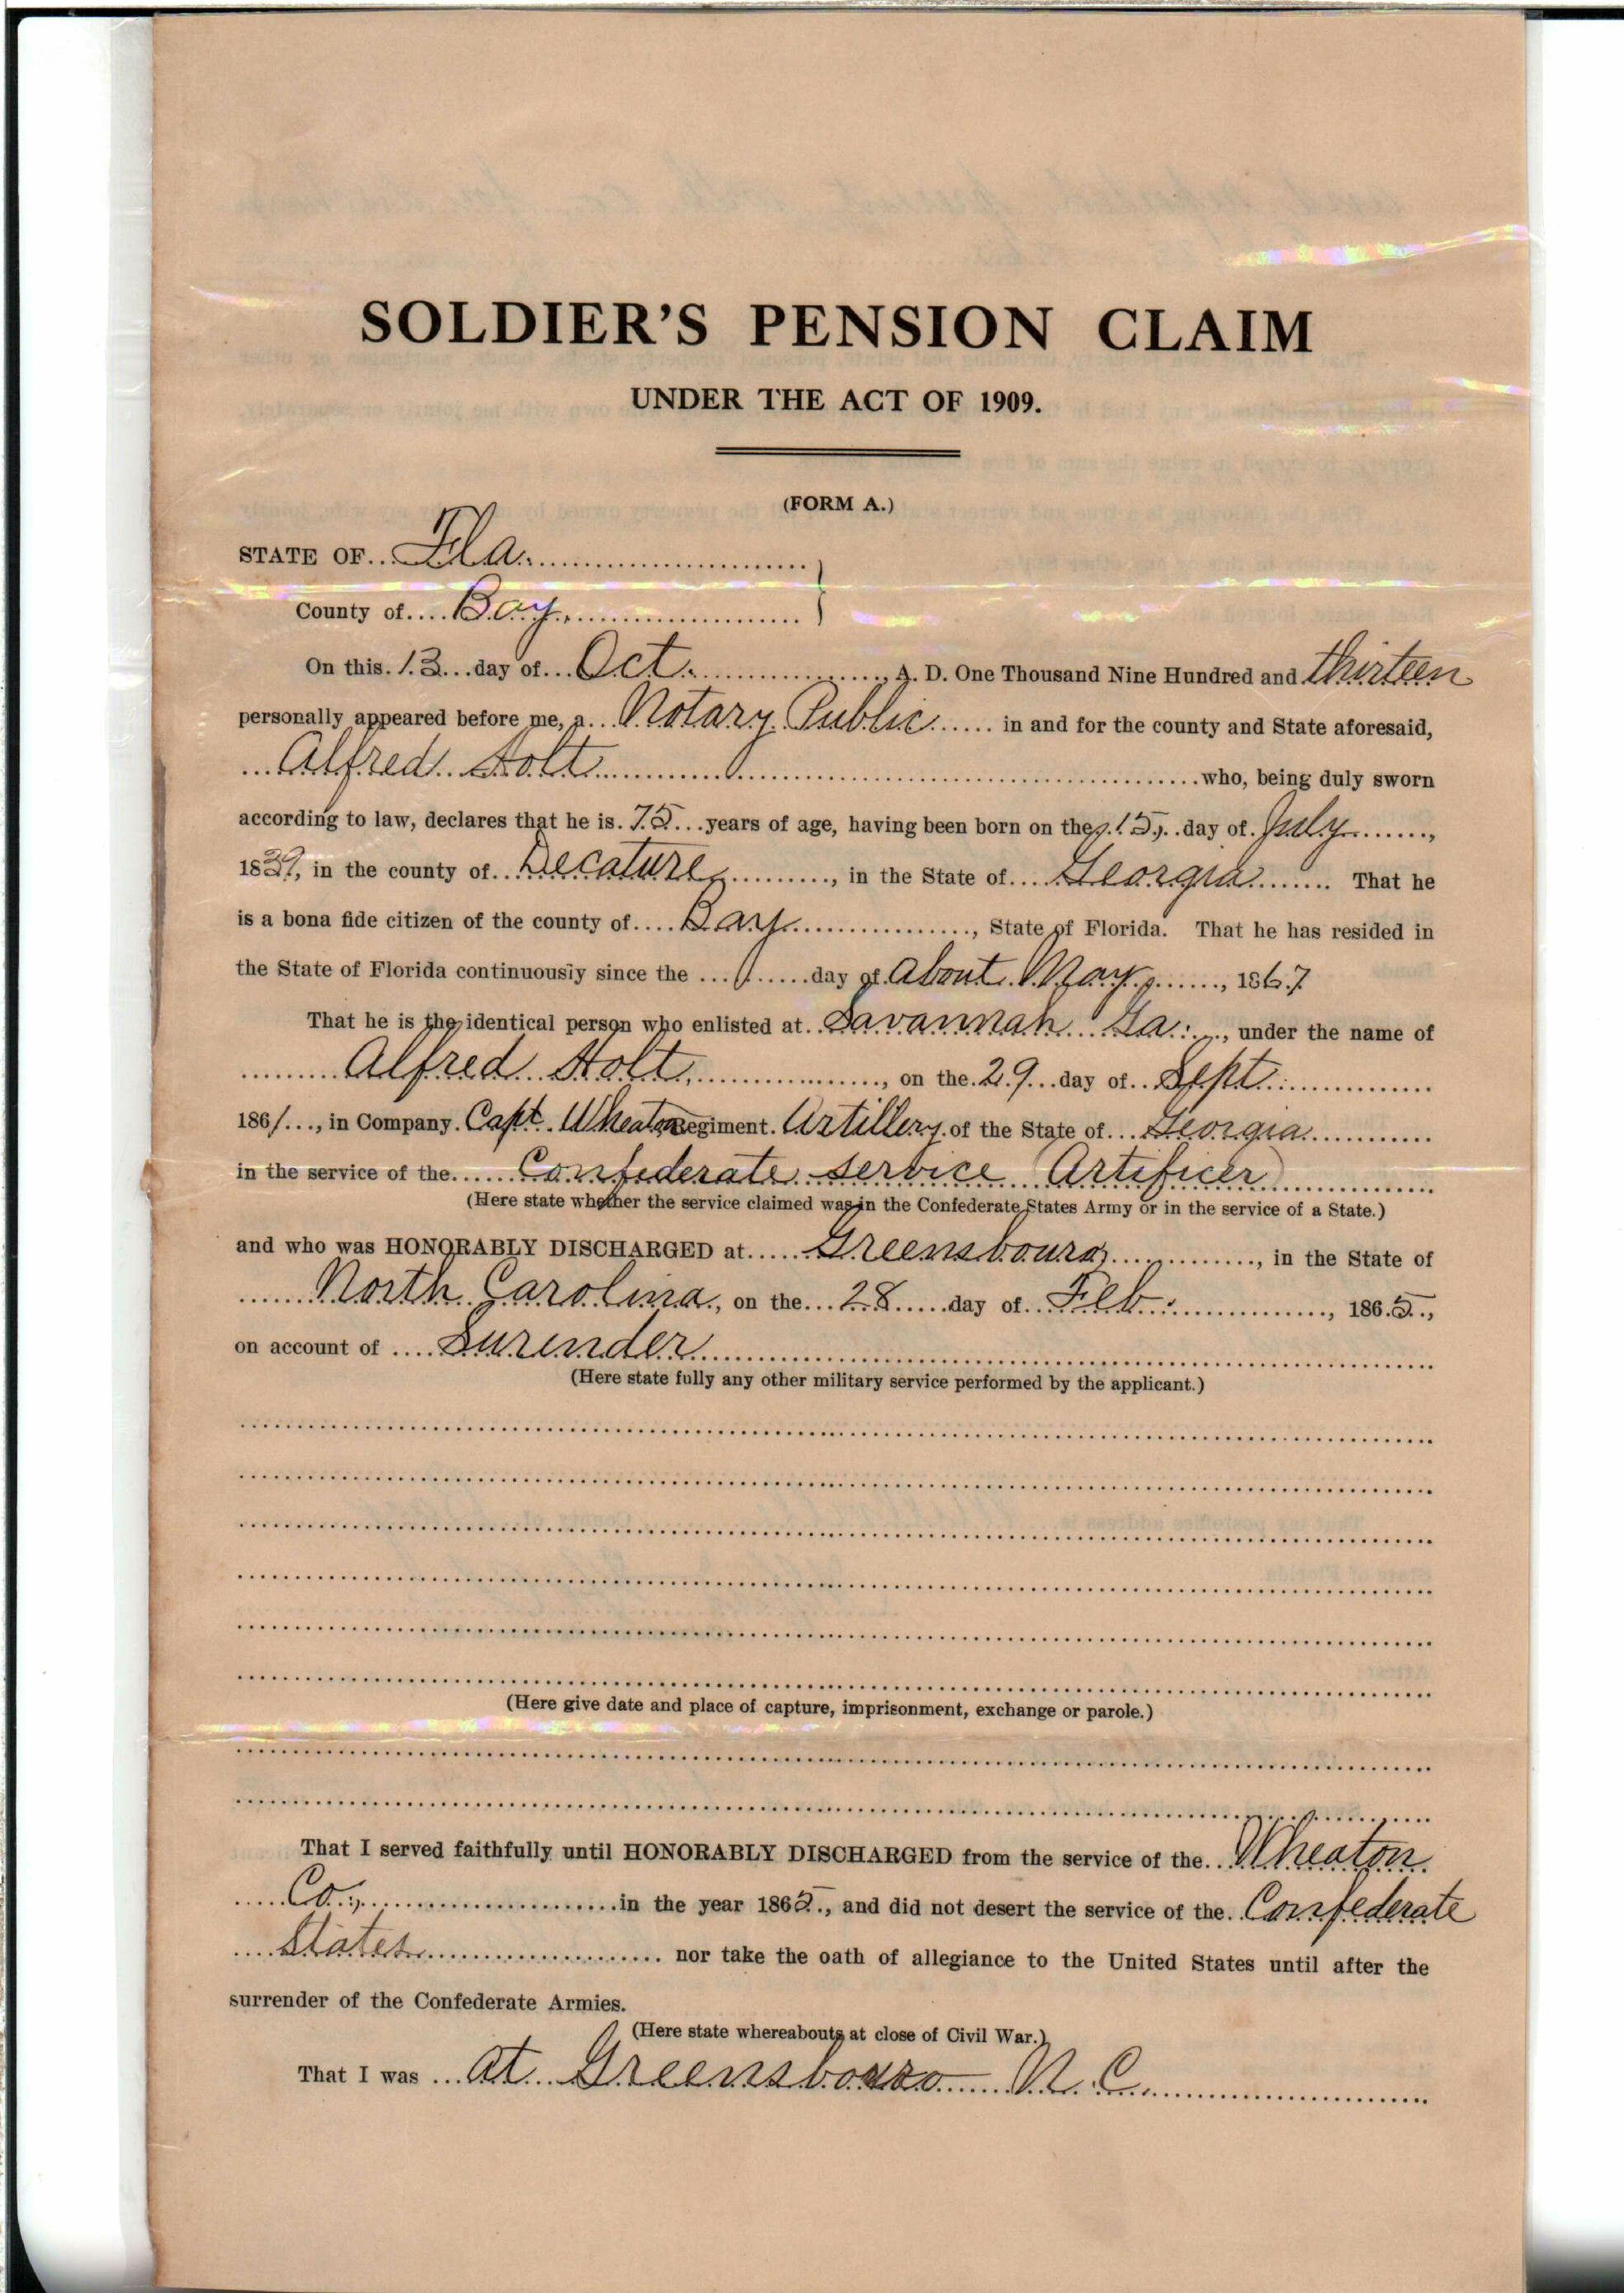 SOLDIER'S PENSION CLAIM
UNDER THE ACT OF 1909.
(FORM A.)
STATE OF Fla.
County of Bay
On this 13 day of Oct. A. D. One Thousand Nine Hundred and thirteen
personally appeared before me, a Notary Public in and for the county and State aforesaid,
Alfred Holt who, being duly sworn
according to law, declares that he is 75 years of age, having been born on the 15 day of July,
1839, in the county of Decature, in the State of Georgia. That he
is a bona fide citizen of the county of Bay, State of Florida. That he has resided in
the State of Florida continuously since the day of About May, 1867
That he is the identical person who enlisted at Savannah Ga., under the name of
Alfred Holt, on the 29 day of Sept.
1861, in Company Capt. Wheaton Regiment Artillery of the State of Georgia
in the service of the Confederate service (Artificer)
(Here state whether the service claimed was in the Confederate States Army or in the service of a State.)
and who was HONORABLY DISCHARGED at Greensbourg, in the State of
North Carolina, on the 28 day of Feb., 1865,
on account of Surender
(Here state fully any other military service performed by the applicant.)
(Here give date and place of capture, imprisonment, exchange or parole.)
That I served faithfully until HONORABLY DISCHARGED from the service of the Wheaton
Co., in the year 1865, and did not desert the service of the Confederate
States nor take the oath of allegiance to the United States until after the
surrender of the Confederate Armies.
(Here state whereabouts at close of Civil War.)
That I was at Greensbouro N. C.